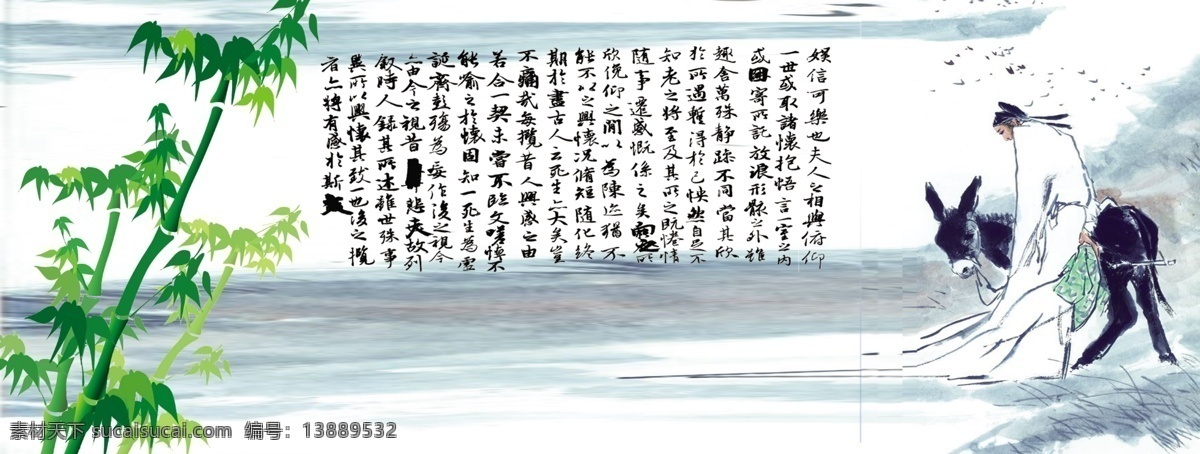 娱信可樂也夫人之相與俯仰
一世或取諸懷抱悟言一室之内
或因寄所託放浪形骸之外雖
趣舍萬殊静躁不同當其欣
於所遇蹔得於己怏然自足不
知老之將至及其所之既惓情
随事遷感慨係之矣向之所
欣俛仰之間以為陳迹猶不
能不以之興懷况脩短随化終
期於盡古人云死生亦大矣豈
不痛哉每攬昔人興感之由
若合一契未嘗不臨文嗟悼不
能喻之於懷固知一死生為虚
誕齊彭殤為妄作後之視今
亦由今之視昔悲夫故列
叙時人録其所述雖世殊事
異所以興懷其致一也後之攬
者亦將有感於斯文
素材天下 sucaisucai.com 编号：13889532